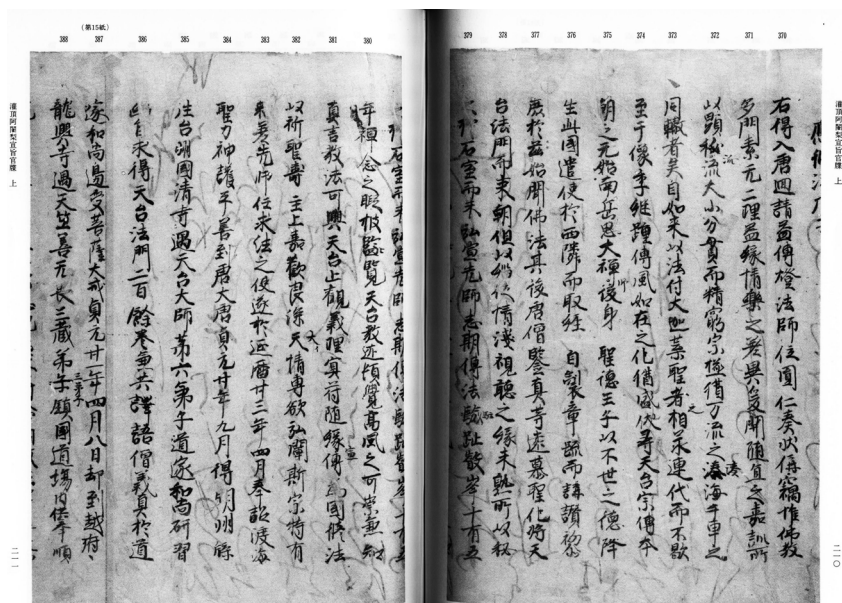 灌頂阿闍梨宣旨官牒 上
二一〇
370
371
372
373
374
375
376
377
378
379
右得入唐廻請益傳燈法師位圓仁奏狀偁竊惟佛教
多門素元二理益緣情樂之差異爰開隨宜之嘉訓所
以顯秘流大小分貫而精窮宗極猶万流之湊海牛車之
同轍者矣自如来以法付大迦葉聖者相承連代而不歇
至于像季継踵傳風如在之化猶盛伏尋天台宗傳本
朝之元始南岳思大禅師後身 聖德王子以不世之德降
生此國遣使於西隣而取経 自製章疏而講讃黎
庶於玆始聞佛法其後唐僧鑒真等遠慕聖化将天
台法門而東朝但以機情淺視聽之緣未熟所以权
石室而未弘宣先師志期傳法 趾數岑十有五
380
381
382
383
384
385
386
387
388
(第15紙)
年禅念之暇披覧天台教迹頓覺高風之可崇兼知
真言教法可興天台止觀義理冥符随緣傳宣為國修法
以祈聖壽 主上嘉歡良深天情專欲弘闡斯宗特有
来差先師任求法之使遂於延曆廿三年四月奉詔渡海
聖力神護平善到唐大唐貞元廿年九月得明州牒
往台洲國清寺遇天台大師第六弟子道邃和尚研習
幽旨求得天台法門二百餘卷兼共譯語僧義真於道
邃和尚邊受菩薩大戒貞元廿一年四月八日却到越府
龍興寺遇天竺善无畏三藏弟子鎮國道場内供奉順
灌頂阿闍梨宣旨官牒 上
二一一